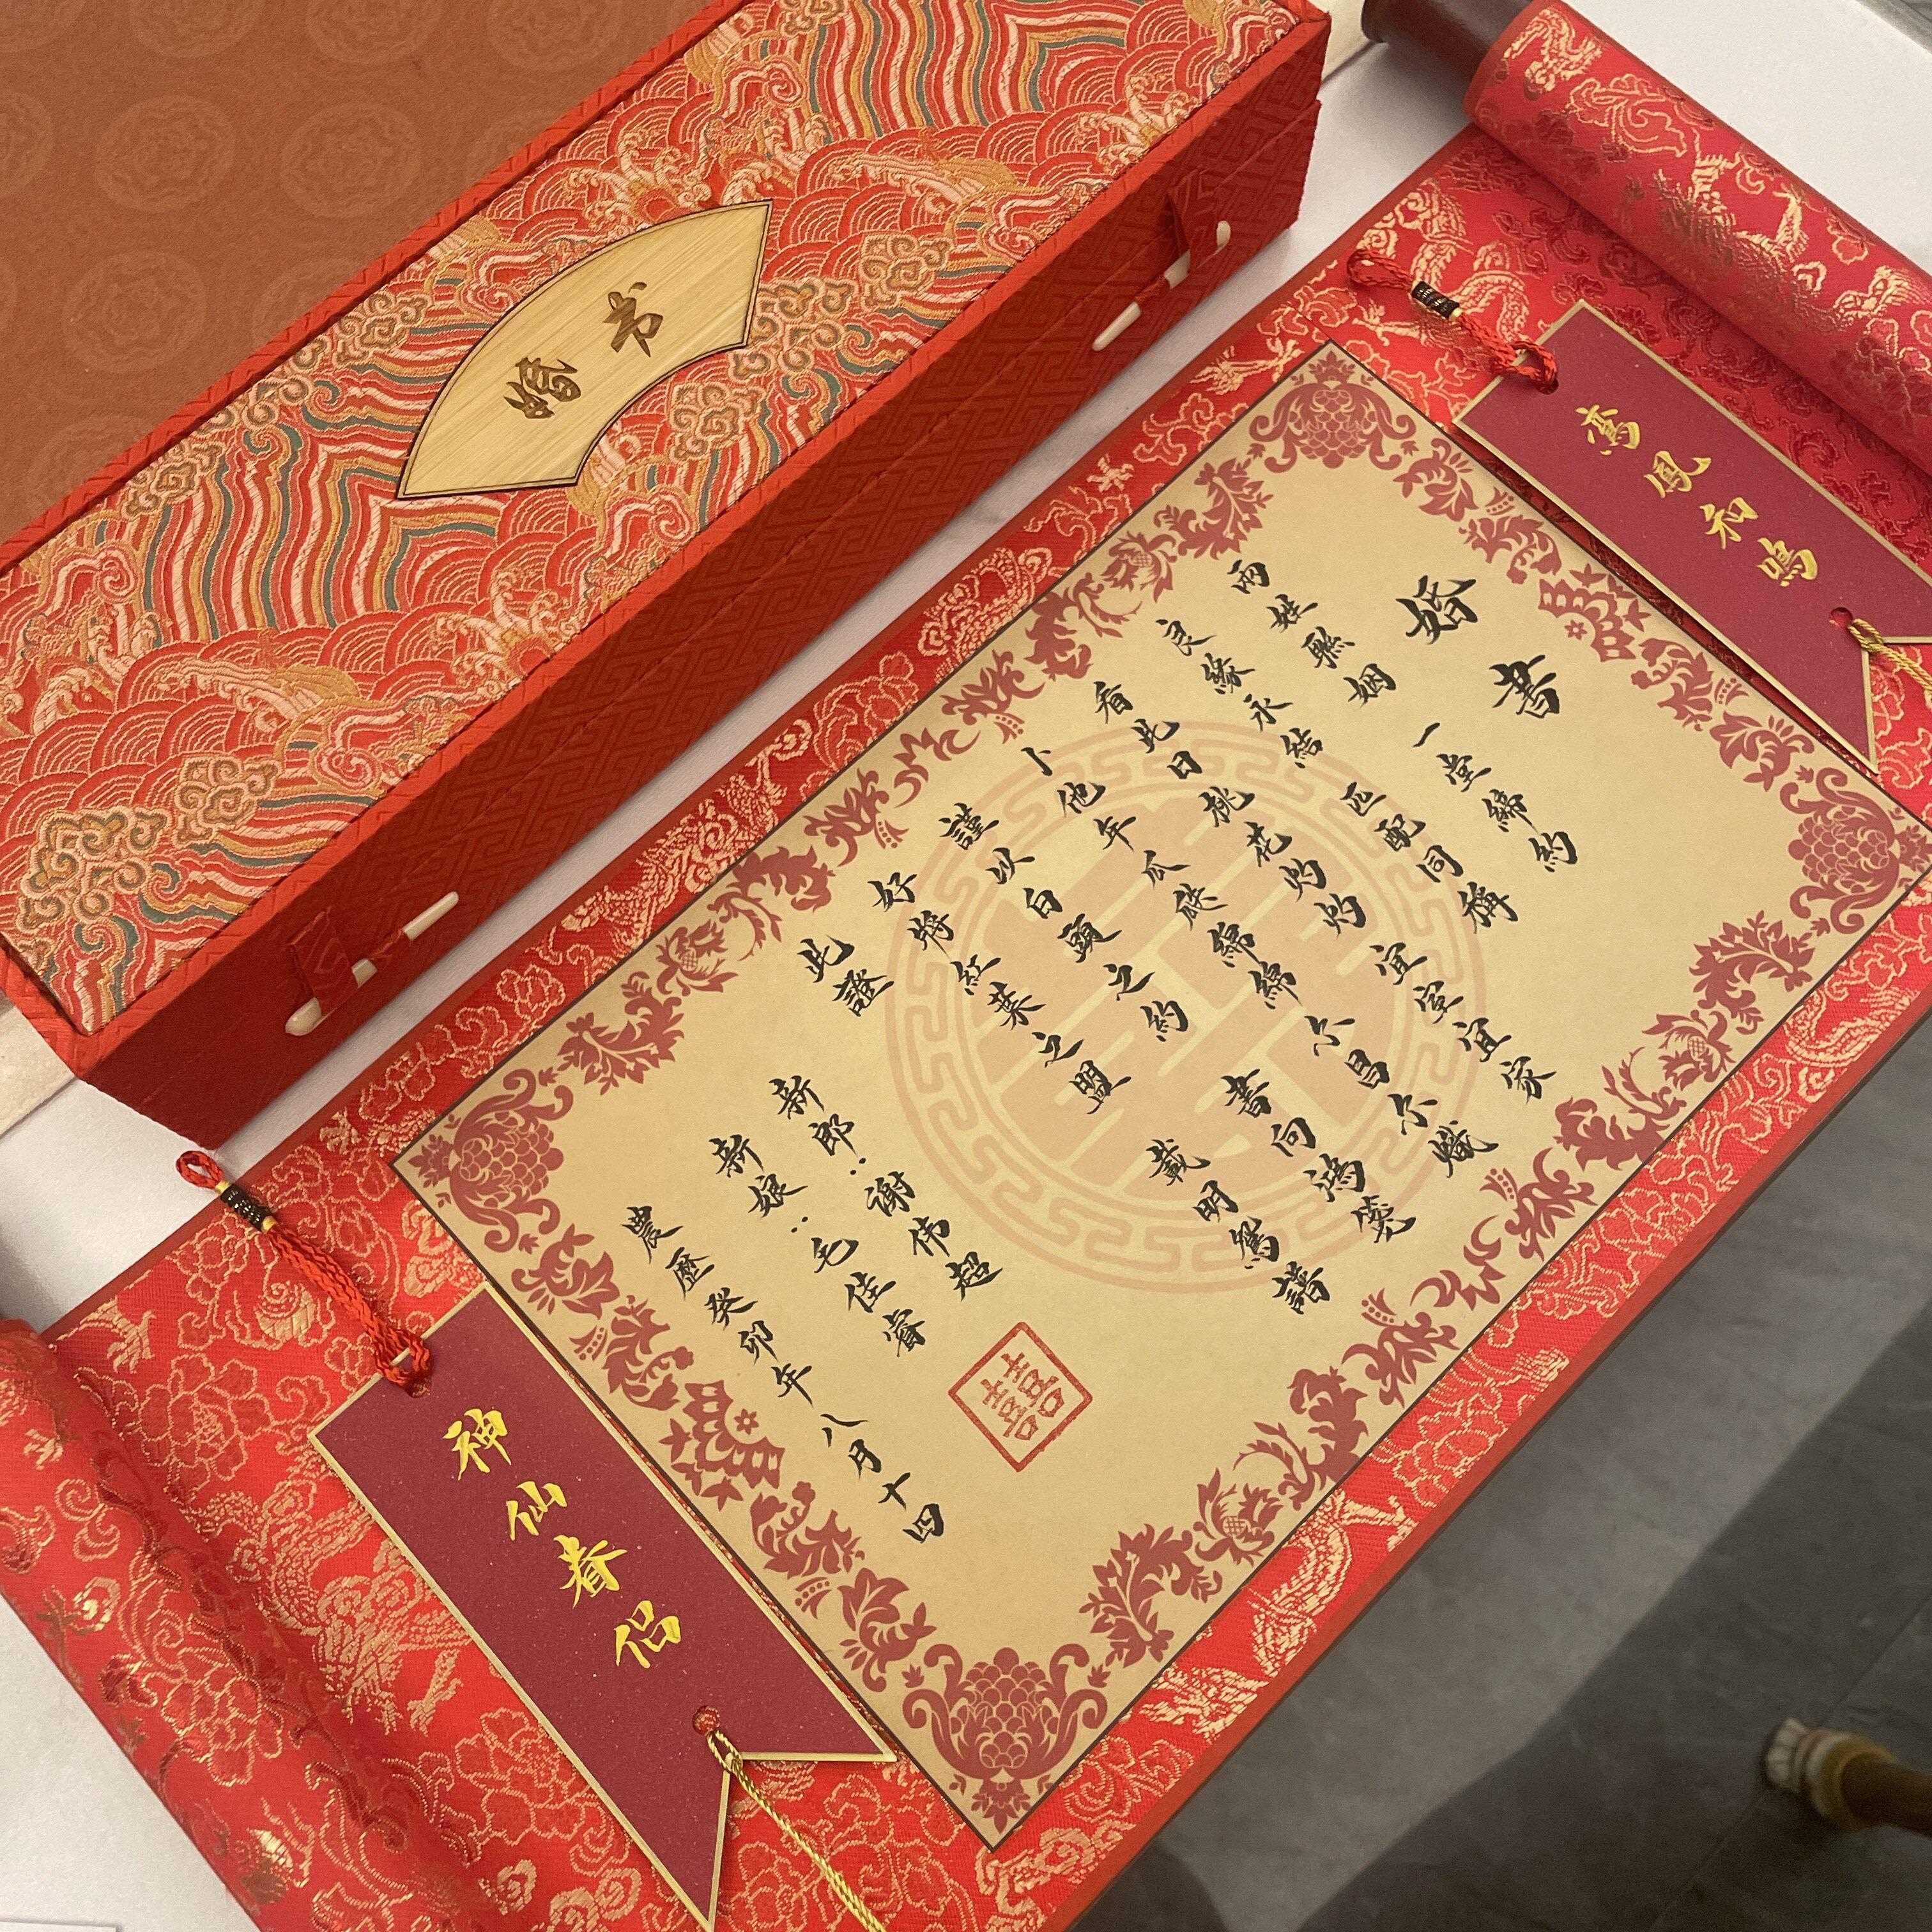 婚书
鸾鳳和鳴
婚書
兩姓聯姻 一堂締約
良緣永結 匹配同稱
看此日桃花灼灼 宜室宜家
卜他年瓜瓞綿綿 尔昌尔熾
謹以白頭之約 書向鴻箋
好將紅葉之盟 載明鴛譜
此證
新郎：謝伟超
新娘：毛佳睿
農歷癸卯年 八月十四
囍
神仙眷侣